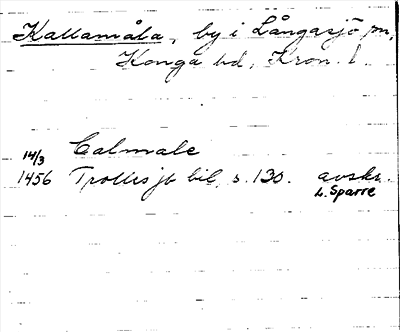 Kallamåla, by i Långasjö sn,
Konga hd, Kron. l.
14/3 Calmale
1456 Trolles jb bil, s. 130. avskr.
L. Sparre